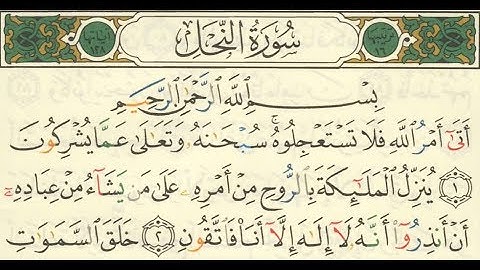 ترتيبها ١٦ سُورَةُ النَّحْلِ آياتها ١٢٨
بِسْمِ ٱللَّهِ ٱلرَّحْمَٰنِ ٱلرَّحِيمِ
أَتَىٰٓ أَمْرُ ٱللَّهِ فَلَا تَسْتَعْجِلُوهُ ۚ سُبْحَٰنَهُۥ وَتَعَٰلَىٰ عَمَّا يُشْرِكُونَ
١ يُنَزِّلُ ٱلْمَلَٰٓئِكَةَ بِٱلرُّوحِ مِنْ أَمْرِهِۦ عَلَىٰ مَن يَشَآءُ مِنْ عِبَادِهِۦٓ
أَنْ أَنذِرُوٓا۟ أَنَّهُۥ لَآ إِلَٰهَ إِلَّآ أَنَا۠ فَٱتَّقُونِ ٢ خَلَقَ ٱلسَّمَٰوَٰتِ